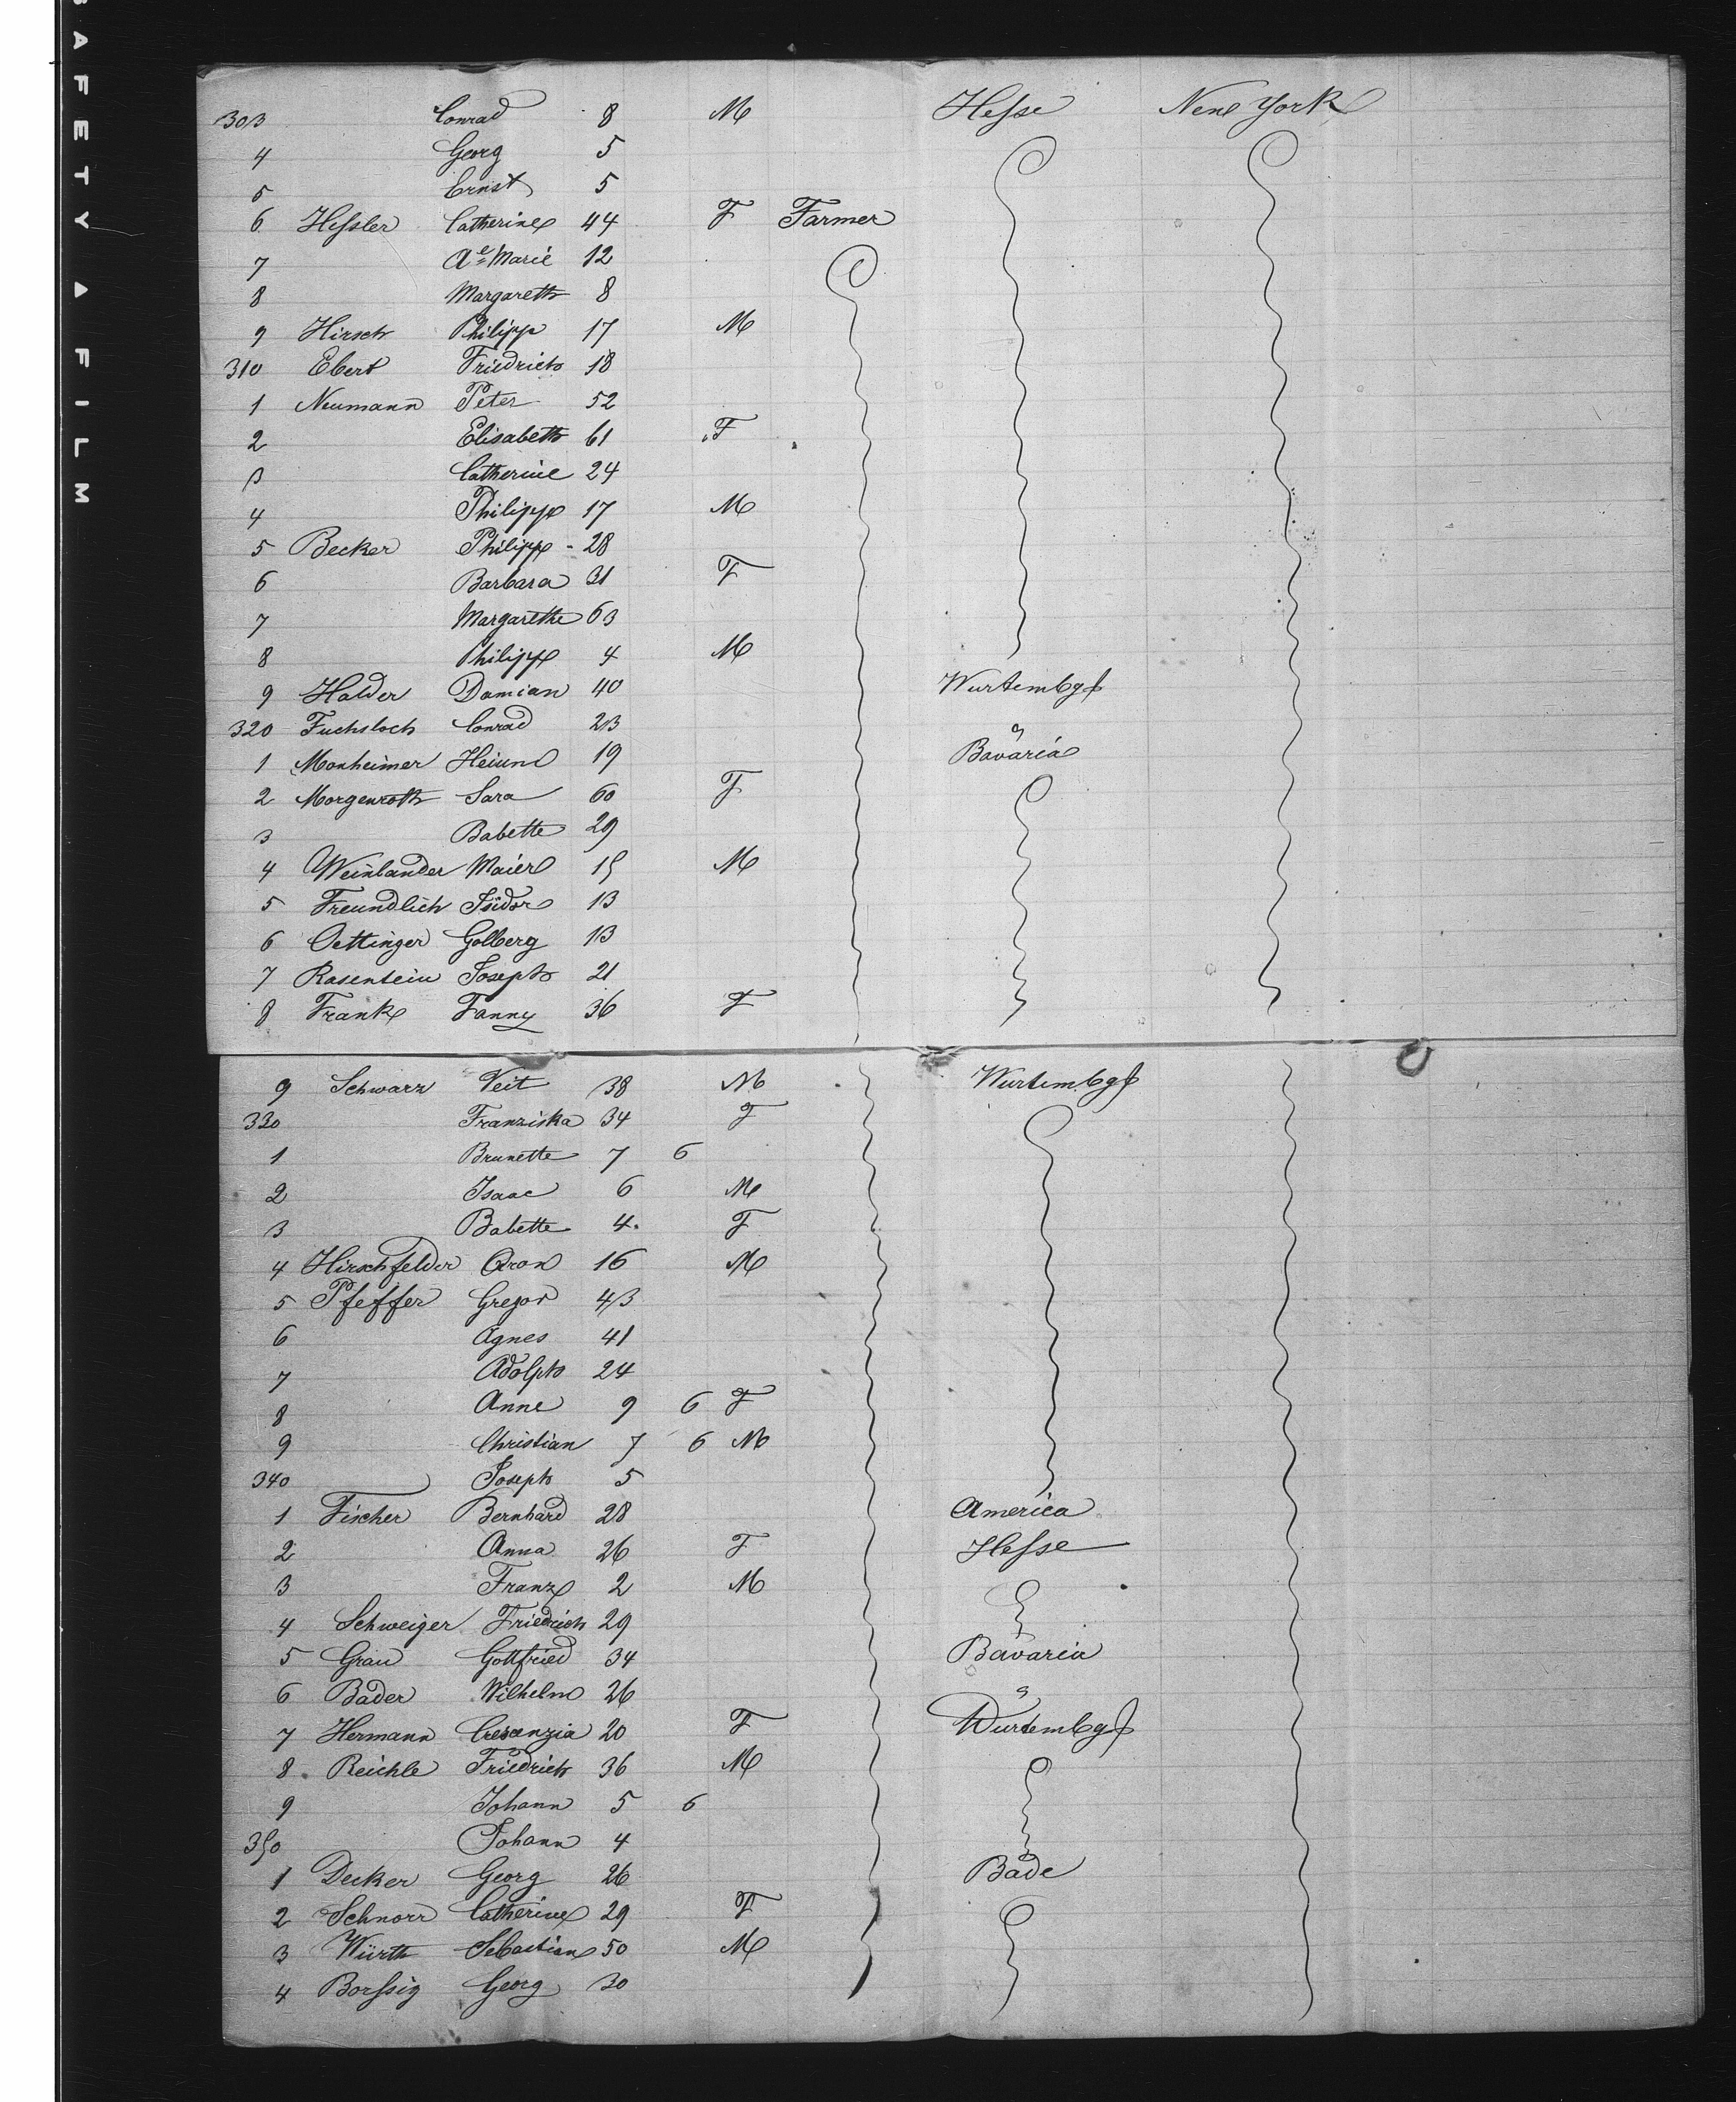 SAFETY FILM
303 Conrad 8 M Hesse New York
4 Georg 5
5 Ernst 5
6 Hessler Catherine 44 F Farmer
7 Ae Marie 12
8 Margareth 8
9 Hirsch Philipp 17 M
310 Ebert Friedrich 18
1 Neumann Peter 52
2 Elisabeth 61 F
3 Catherine 24
4 Philipp 17 M
5 Becker Philipp - 28
6 Barbara 31 F
7 Margarethe 63
8 Philipp 4 M
9 Halder Damian 40 Wurtembg
320 Fuchsloch Conrad 23 "
1 Monheimer 19 Bavaria
2 Morgenroth Sara 60 F
3 Babette 29
4 Weinlander Maier 15 M
5 Freundlich Isidor 13
6 Oettinger Golberg 13
7 Rasenstein Joseph 21
8 Frank Fanny 36 F
9 Schwarz Veit 38 M Wurtembg
330 Franziska 34 F
1 Brunette 7 6
2 Isaac 6 M
3 Babette 4 F
4 Hirschfelder Aron 16 M
5 Pfeffer Gregor 43
6 Agnes 41
7 Adolph 24
8 Anne 9 6 F
9 Christian 7 6 M
340 Joseph 5
1 Fischer Bernhard 28 America
2 Anna 26 F Hesse
3 Franz 2 M
4 Schweiger Friedrich 29
5 Grau Gottfried 34 Bavaria
6 Bader Wilhelm 26 "
7 Hermann Crescenzia 20 F Wurtembg
8 Reichle Friedrich 36 M
9 Johann 5 6
350 Johann 4
1 Decker Georg 26 Bade
2 Schnorr Catherine 29 F
3 Würth Sebastian 50 M
4 Borssig Georg 30